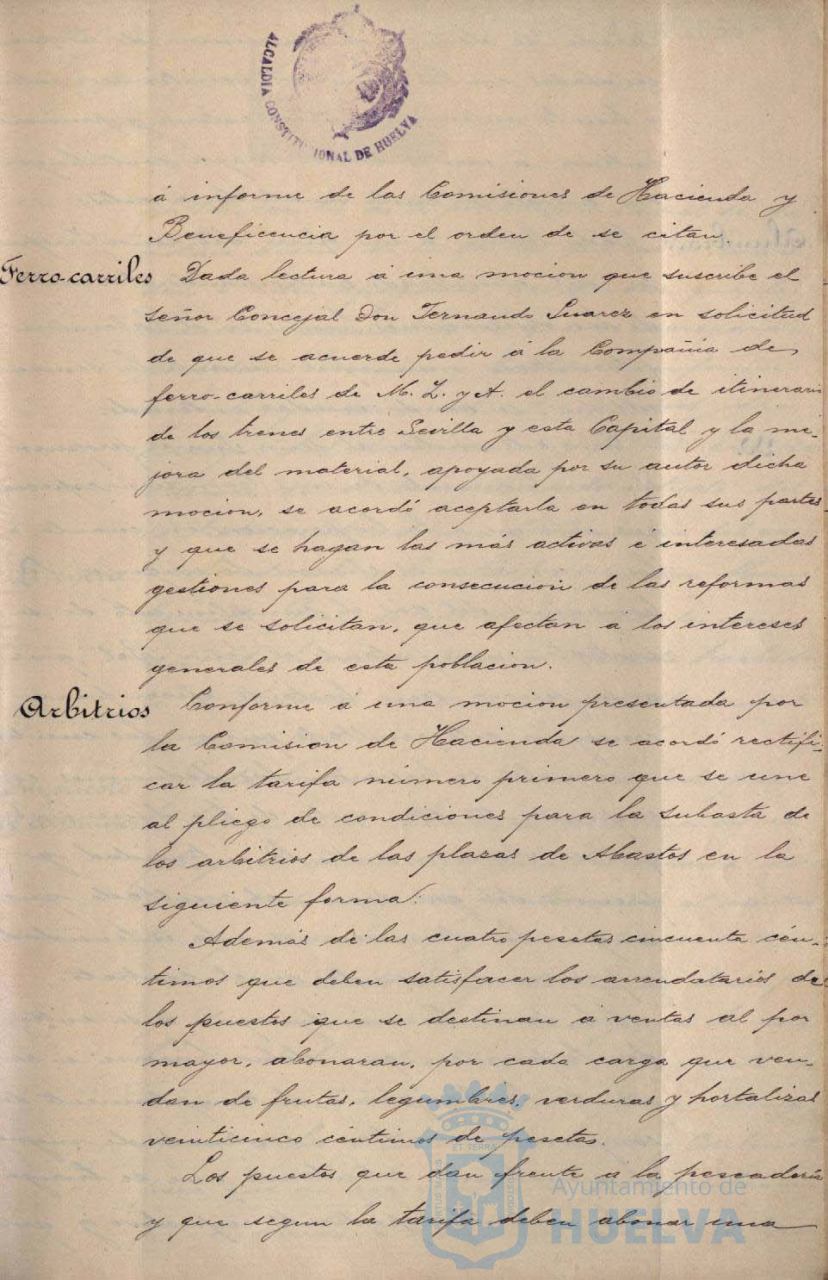 ALCALDIA CONSTITUCIONAL DE HUELVA
á informe de las Comisiones de Hacienda y
Beneficencia por el orden de se citan.
Ferro-carriles Dada lectura á una mocion que suscribe el
señor Concejal Don Fernando Suarez en solicitud
de que se acuerde pedir á la Compañia de
ferro-carriles de M. Z. y A. el cambio de itinerario
de los trenes entre Sevilla y esta Capital y la me-
jora del material, apoyada por su autor dicha
mocion, se acordó aceptarla en todas sus partes
y que se hagan las más activas é interesadas
gestiones para la consecucion de las reformas
que se solicitan, que afectan á los intereses
generales de esta poblacion.
Arbitrios Conforme á una mocion presentada por
la Comision de Hacienda se acordó rectifi-
car la tarifa número primero que se une
al pliego de condiciones para la subasta de
los arbitrios de las plazas de Abastos en la
siguiente forma:
Además de las cuatro pesetas cincuenta cén-
timos que deben satisfacer los arrendatarios de
los puestos que se destinan á ventas al por
mayor, abonaran, por cada carga que ven-
dan de frutas, legumbres, verduras y hortalizas
veinticinco céntimos de pesetas.
Los puestos que dan frente á la pescadería
y que segun la tarifa deben abonar una
Ayuntamiento de
HUELVA